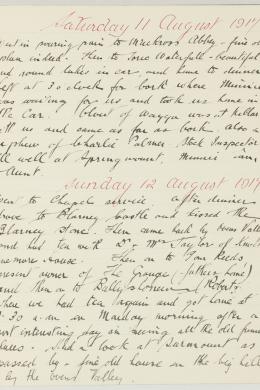 Saturday 11 August 1917
went in pouring rain to Muckross Abbey - fine old
indeed. Then to Torc Waterfall - beautiful
and round lakes in car and home to dinner
Left at 3 o'clock for Cork where Minnie
was waiting for us and took us home in
the Car. of Wagga was at Killar
left us and came as far as Cork also a
nephew of Charlie Palmer Stock Inspector
all well at Springmount. Minnie and
Aunt.
Sunday 12 August 1917
went to Chapel service. after dinner
drove to Blarney Castle and kissed the
Blarney Stone. Then came back by Lovers Valley
and had tea with Dr & Mrs Taylor of
House. Then on to
present owner of The Grange (fathers home)
and then on to Ballyshoneen Roberts
where we had tea again and got home at
.30 a.m. on Monday morning after a
most interesting day in seeing all the old family
places. Had a look at Sarmount as
passed by - fine old house on the big hill
by the Valley.